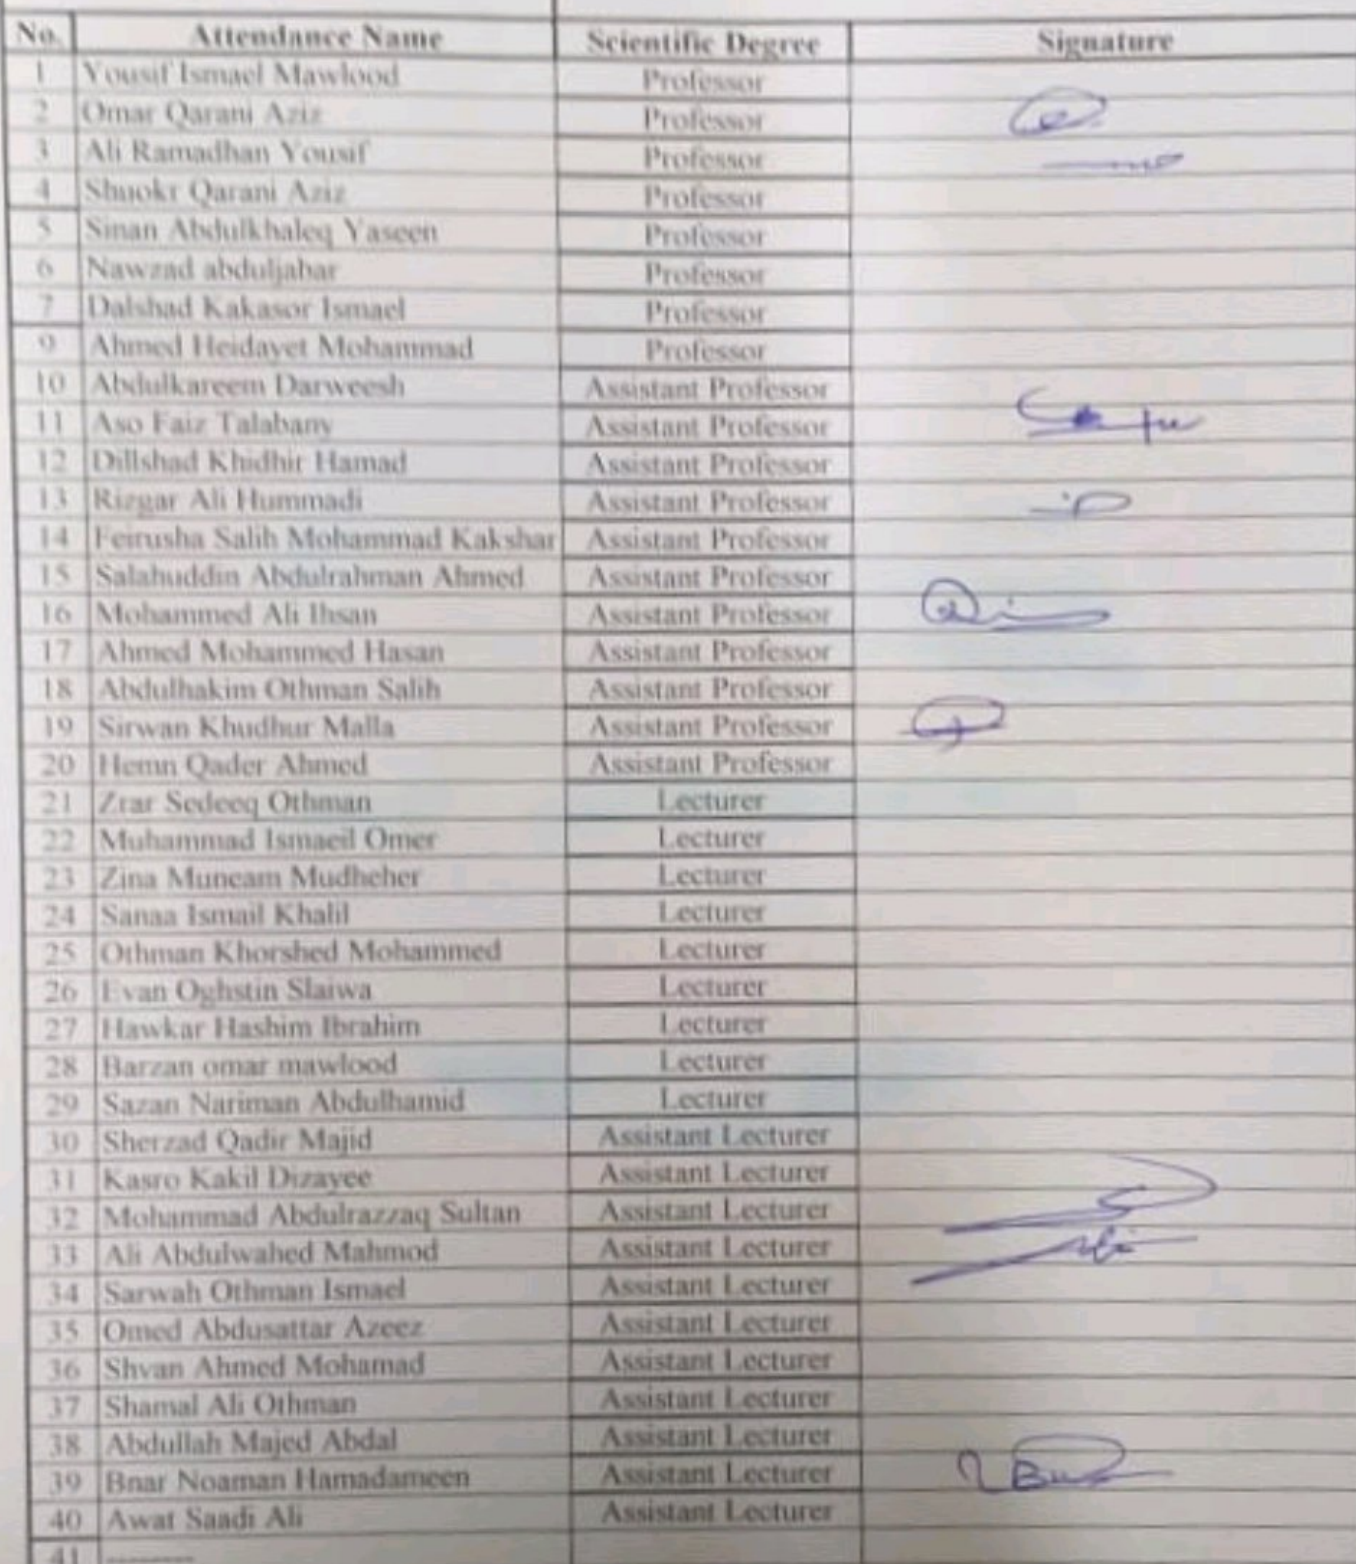 No. Attendance Name Scientific Degree Signature
1 Yousif Ismael Mawlood Professor
2 Omar Qarani Aziz Professor
3 Ali Ramadhan Yousif Professor
4 Shuokr Qarani Aziz Professor
5 Sinan Abdulkhaleq Yaseen Professor
6 Nawzad abduljabar Professor
7 Dalshad Kakasor Ismael Professor
9 Ahmed Heidayet Mohammad Professor
10 Abdulkareem Darweesh Assistant Professor
11 Aso Faiz Talabany Assistant Professor
12 Dillshad Khidhir Hamad Assistant Professor
13 Rizgar Ali Hummadi Assistant Professor
14 Feirusha Salih Mohammad Kakshar Assistant Professor
15 Salahuddin Abdulrahman Ahmed Assistant Professor
16 Mohammed Ali Ihsan Assistant Professor
17 Ahmed Mohammed Hasan Assistant Professor
18 Abdulhakim Othman Salih Assistant Professor
19 Sirwan Khudhur Malla Assistant Professor
20 Hemn Qader Ahmed Assistant Professor
21 Zrar Sedeeq Othman Lecturer
22 Muhammad Ismaeil Omer Lecturer
23 Zina Muneam Mudheher Lecturer
24 Sanaa Ismail Khalil Lecturer
25 Othman Khorshed Mohammed Lecturer
26 Evan Oghstin Slaiwa Lecturer
27 Hawkar Hashim Ibrahim Lecturer
28 Barzan omar mawlood Lecturer
29 Sazan Nariman Abdulhamid Lecturer
30 Sherzad Qadir Majid Assistant Lecturer
31 Kasro Kakil Dizayee Assistant Lecturer
32 Mohammad Abdulrazzaq Sultan Assistant Lecturer
33 Ali Abdulwahed Mahmod Assistant Lecturer
34 Sarwah Othman Ismael Assistant Lecturer
35 Omed Abdusattar Azeez Assistant Lecturer
36 Shvan Ahmed Mohamad Assistant Lecturer
37 Shamal Ali Othman Assistant Lecturer
38 Abdullah Majed Abdal Assistant Lecturer
39 Bnar Noaman Hamadameen Assistant Lecturer
40 Awat Saadi Ali Assistant Lecturer
41 --------